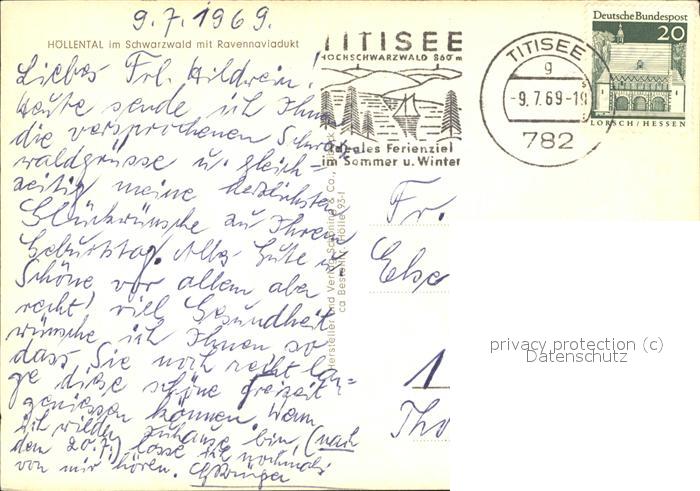 9.7.1969.
HÖLLENTAL im Schwarzwald mit Ravennaviadukt
Liebes Frl. Hildwein!
Heute sende ich Ihnen
die versprochenen Schwarz
waldgrüsse u. gleich-
zeitig meine herzlichsten
Glückwünsche zu Ihrem
Geburtstag. Alles Gute u.
Schöne vor allem aber
recht viel Gesundheit
wünsche ich Ihnen so
dass Sie noch recht lan-
ge diese schöne Freizeit
geniessen können. Wenn
ich wieder zuhause bin, (nach
dem 20.7.) lasse ich nochmals
von mir hören.
TITISEE
HOCHSCHWARZWALD 860 m
Ideales Ferienziel
im Sommer u. Winter
TITISEE
g
-9.7.69-19
782
Deutsche Bundespost
20
LORSCH/HESSEN
Hersteller und Verlag Schöning & Co.,
Bestell-Nr. Hölle 93-1
Fr.
Else
1
Tho
privacy protection (c)
Datenschutz